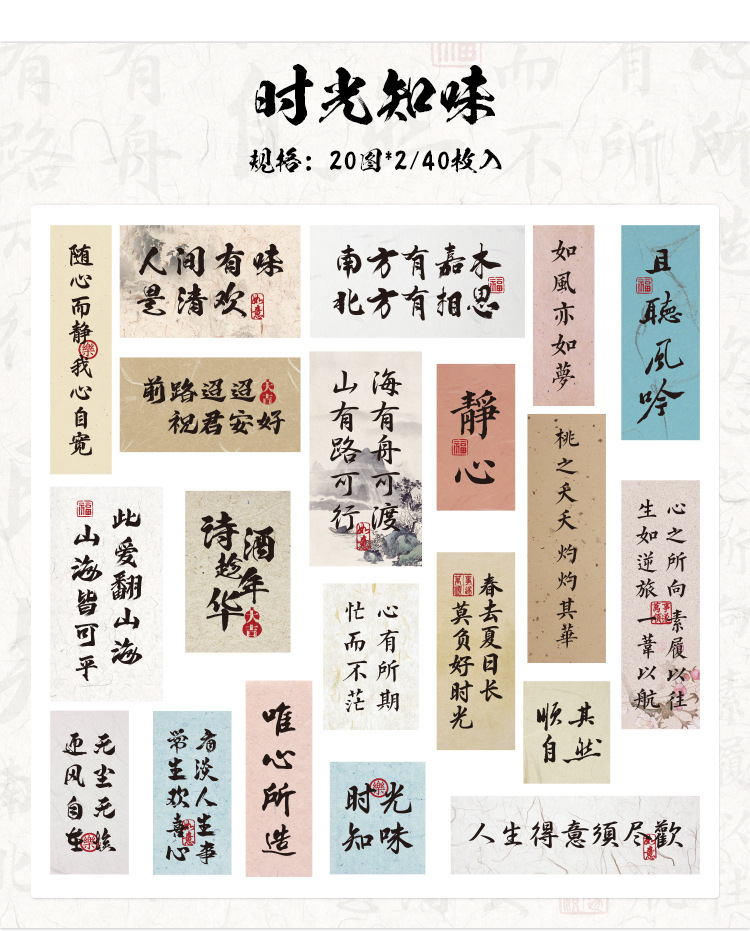 时光知味
规格：20图*2/40枚入
随心而静我心自宽
樂
人间有味
是清欢
如意
南方有嘉木
北方有相思
福
如風亦如夢
且聽風吟
福
前路迢迢
祝君安好
大吉
海有舟可渡
山有路可行
如意
靜心
福
桃之夭夭 灼灼其華
此爱翻山海
山海皆可平
福
诗酒
趁年
华
大吉
心有所期
忙而不茫
春去夏日长
莫负好时光
心之所向 素履以往
生如逆旅 一葦以航
无尘无
风自在
樂
淡人生事
常生欢喜心
如意
唯心所造
时光
知味
樂
顺其
自然
人生得意須尽歡
如意